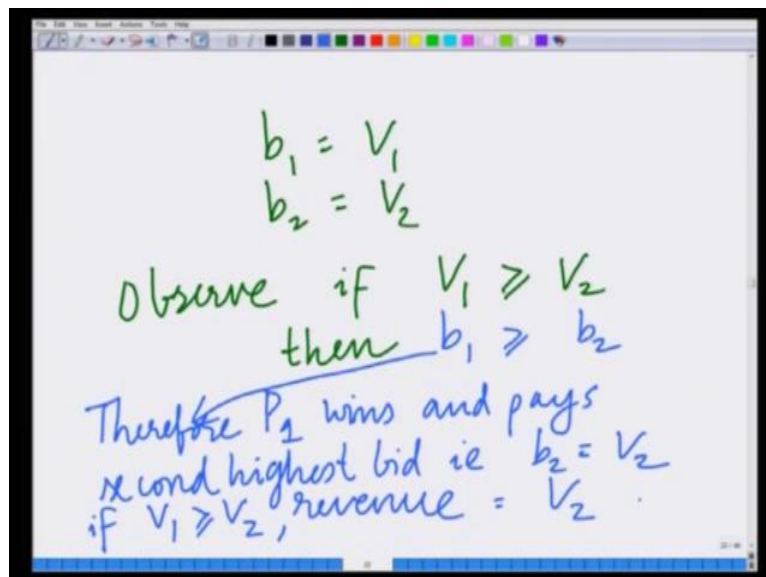 File Edit View Insert Actions Tools Help
b₁ = V₁
b₂ = V₂
Observe if V₁ ⩾ V₂
then b₁ ⩾ b₂
Therefore P₁ wins and pays
second highest bid ie b₂ = V₂
if V₁ ⩾ V₂, revenue = V₂